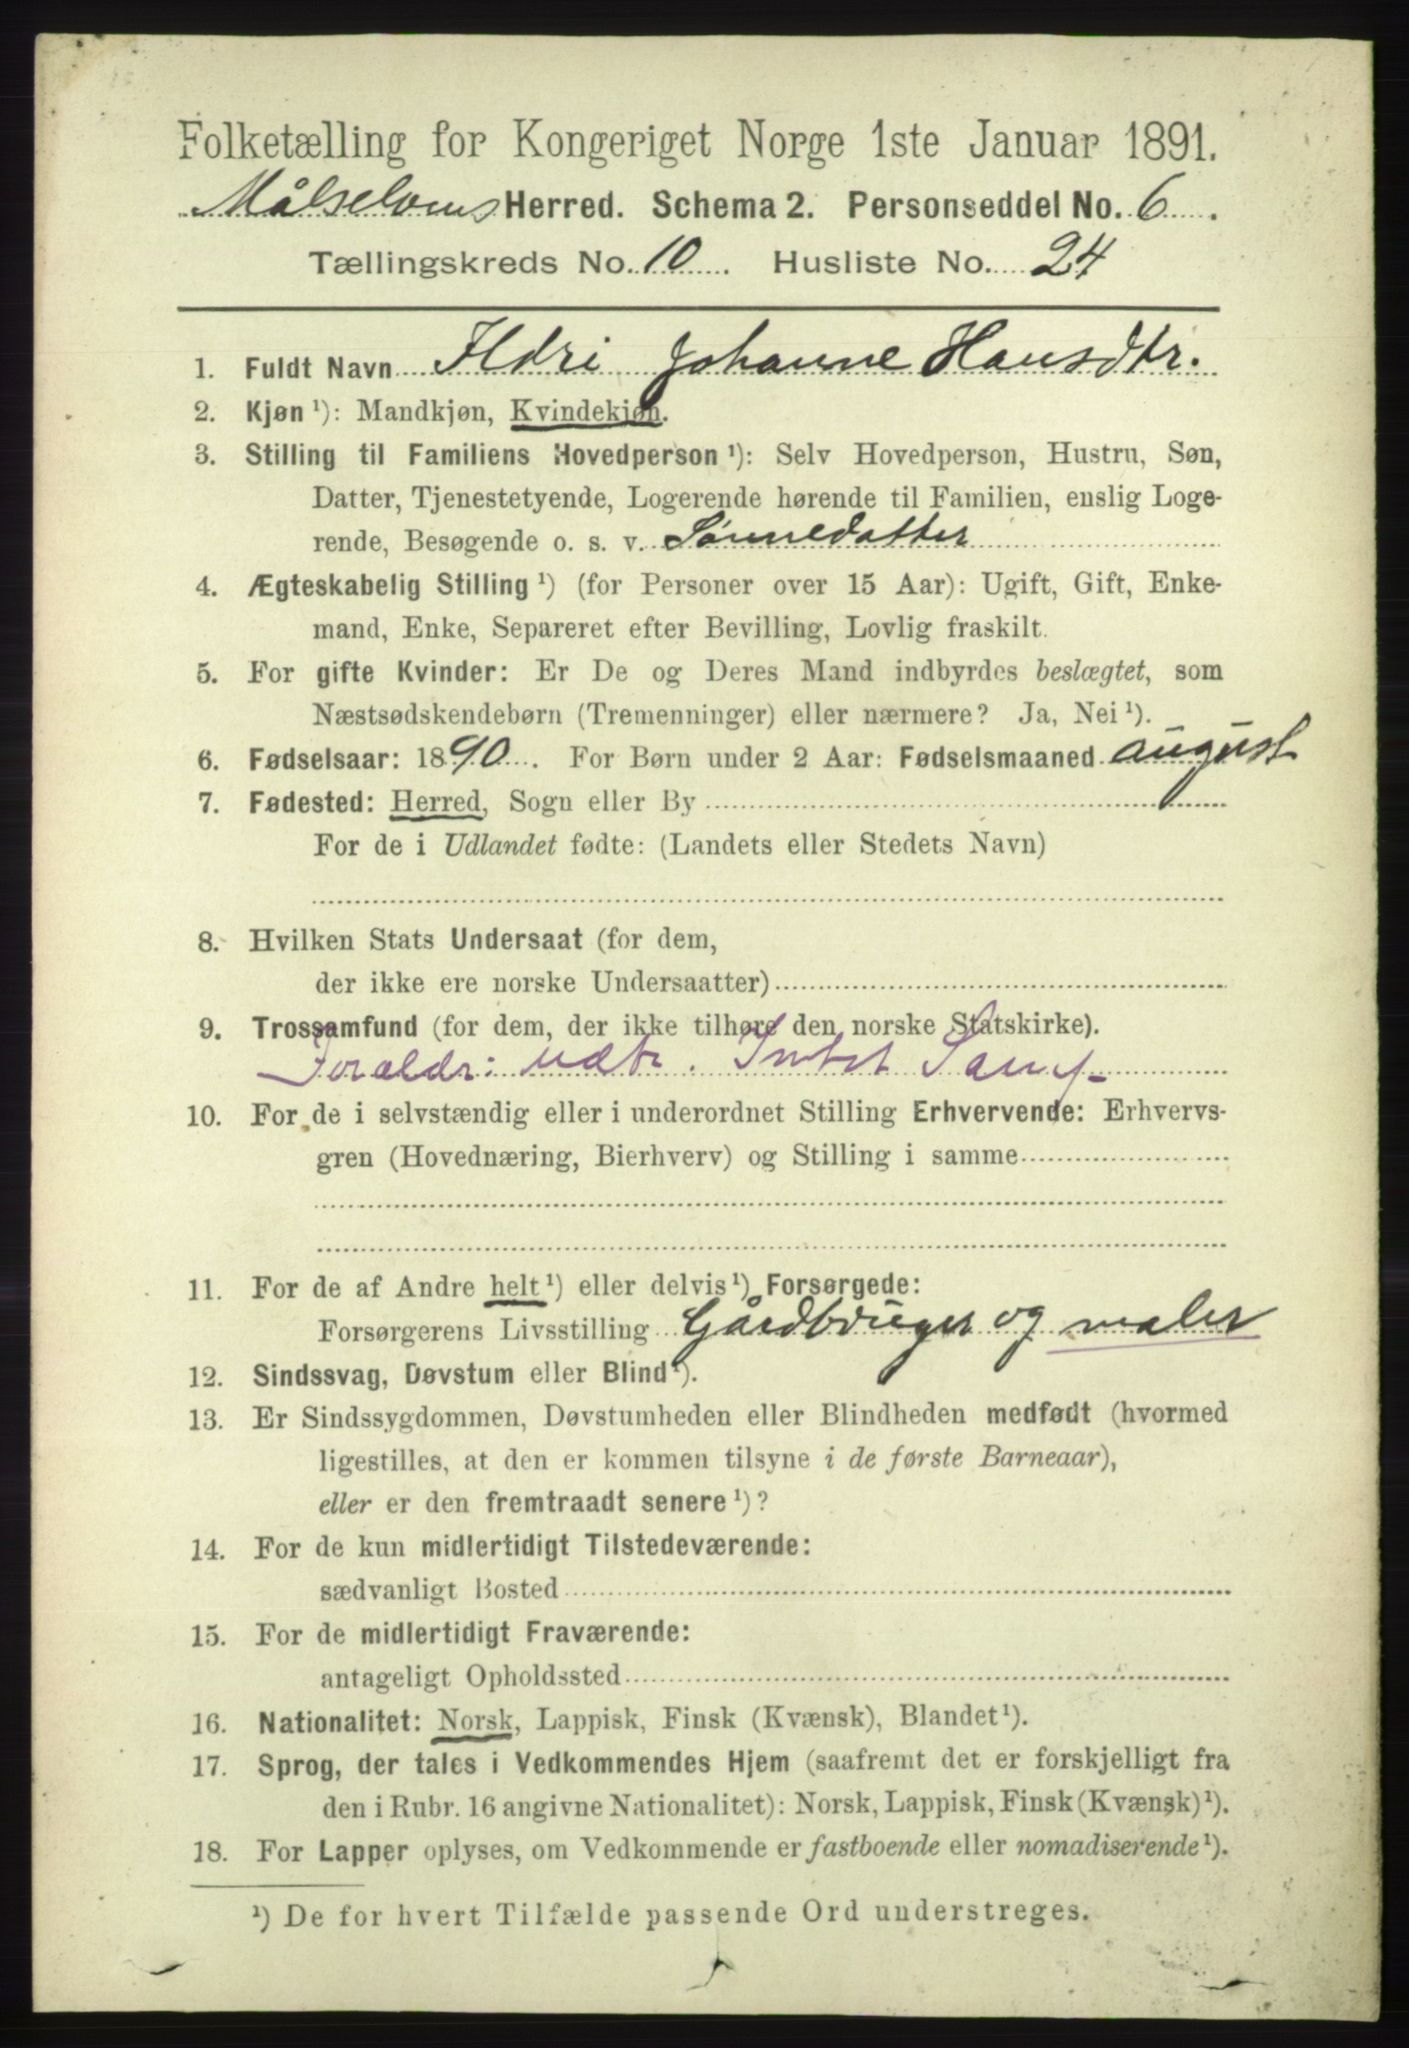 Folketælling for Kongeriget Norge 1ste Januar 1891.
Målselvens Herred. Schema 2. Personseddel No. 6.
Tællingskreds No. 10. Husliste No. 24
1. Fuldt Navn Ildri Johanne Hansdtr.
2. Kjøn ¹): Mandkjøn, Kvindekjøn.
3. Stilling til Familiens Hovedperson ¹): Selv Hovedperson, Hustru, Søn,
Datter, Tjenestetyende, Logerende hørende til Familien, enslig Loge-
rende, Besøgende o. s. v. Sønnedatter
4. Ægteskabelig Stilling ¹) (for Personer over 15 Aar): Ugift, Gift, Enke-
mand, Enke, Separeret efter Bevilling, Lovlig fraskilt.
5. For gifte Kvinder: Er De og Deres Mand indbyrdes beslægtet, som
Næstsødskendebørn (Tremenninger) eller nærmere? Ja, Nei ¹).
6. Fødselsaar: 1890. For Børn under 2 Aar: Fødselsmaaned august
7. Fødested: Herred, Sogn eller By
For de i Udlandet fødte: (Landets eller Stedets Navn)
8. Hvilken Stats Undersaat (for dem,
der ikke ere norske Undersaatter)
9. Trossamfund (for dem, der ikke tilhøre den norske Statskirke).
Forældr: udtr. Intet Samf
10. For de i selvstændig eller i underordnet Stilling Erhvervende: Erhvervs-
gren (Hovednæring, Bierhverv) og Stilling i samme
11. For de af Andre helt ¹) eller delvis ¹) Forsørgede:
Forsørgerens Livsstilling Gårdbruger og maler
12. Sindssvag, Døvstum eller Blind ¹).
13. Er Sindssygdommen, Døvstumheden eller Blindheden medfødt (hvormed
ligestilles, at den er kommen tilsyne i de første Barneaar),
eller er den fremtraadt senere ¹)?
14. For de kun midlertidigt Tilstedeværende:
sædvanligt Bosted
15. For de midlertidigt Fraværende:
antageligt Opholdssted
16. Nationalitet: Norsk, Lappisk, Finsk (Kvænsk), Blandet ¹).
17. Sprog, der tales i Vedkommendes Hjem (saafremt det er forskjelligt fra
den i Rubr. 16 angivne Nationalitet): Norsk, Lappisk, Finsk (Kvænsk) ¹).
18. For Lapper oplyses, om Vedkommende er fastboende eller nomadiserende ¹).
¹) De for hvert Tilfælde passende Ord understreges.